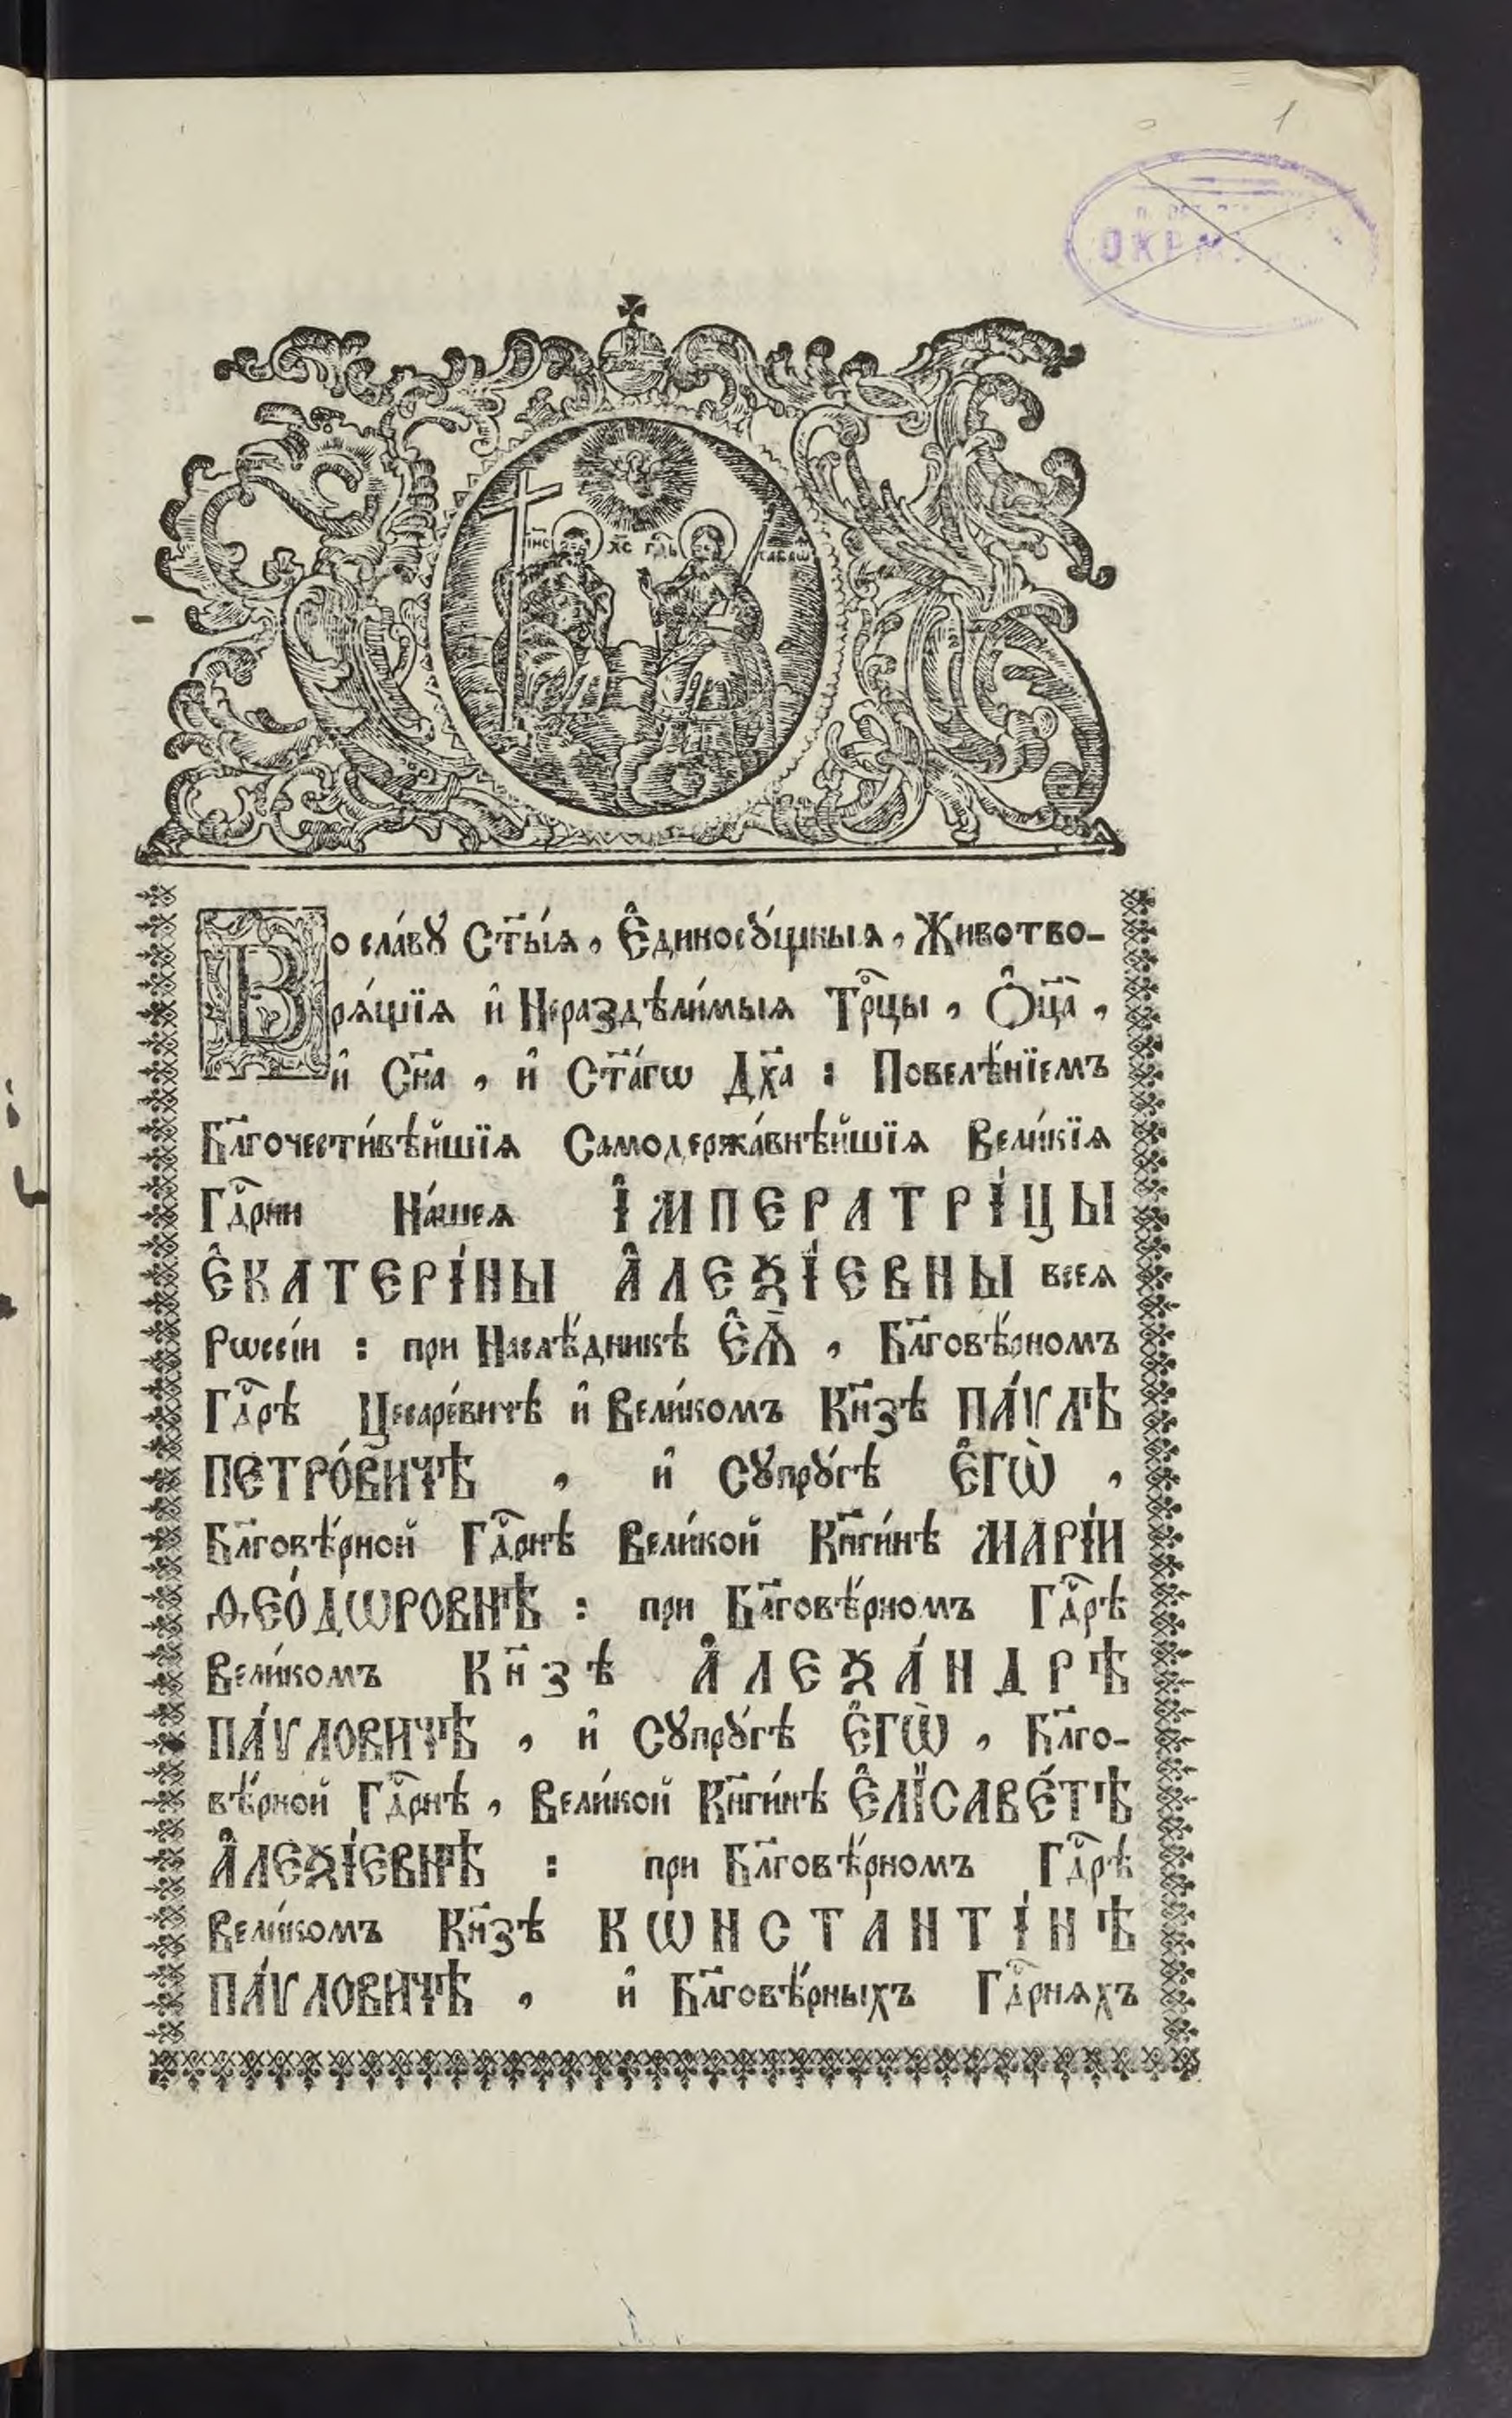 1
ІИС ХС ГДЬ САВАѠ
Во сла́вꙋ Ст҃ы́ѧ, Є҆диносꙋ́щныѧ, Животво-
рѧ́щїѧ и҆ Нераздѣли́мыѧ Трⷪ҇цы, Ѻ҆ц҃а̀,
и҆ Сн҃а, и҆ Ст҃а́гѡ Дх҃а: Повелѣ́нїемъ
Бл҃гочести́вѣйшїѧ Самодержа́внѣйшїѧ Вели́кїѧ
Гдⷭ҇рни На́шеѧ І҆МПЕРАТРІ́ЦЫ
Є҆КАТЕРІ́НЫ А҆ЛЕѮІ́ЕВНЫ всеѧ
Рѡссі́и: при Наслѣ́дникѣ Є҆Ѧ̀, Бл҃говѣ́рномъ
Гдⷭ҇рѣ Цесаре́вичѣ и҆ Вели́комъ Кн҃зѣ ПА́ѴЛѢ
ПЕТРО́ВИЧѢ, и҆ Сꙋпрꙋ́гѣ Є҆ГѠ̀,
Бл҃говѣ́рной Гдⷭ҇рнѣ Вели́кой Кн҃ги́нѣ МАРІ́И
Ѳ҆ЕО́ДѠРОВНѢ: при Бл҃говѣ́рномъ Гдⷭ҇рѣ
Вели́комъ Кн҃зѣ А҆ЛЕѮА́НДРѢ
ПА́ѴЛОВИЧѢ, и҆ Сꙋпрꙋ́гѣ Є҆ГѠ̀, Бл҃го-
вѣ́рной Гдⷭ҇рнѣ, Вели́кой Кн҃ги́нѣ Є҆ЛІСАВЕ́ТѢ
А҆ЛЕѮІ́ЕВНѢ: при Бл҃говѣ́рномъ Гдⷭ҇рѣ
Вели́комъ Кн҃зѣ КѠНСТАНТІ́НѢ
ПА́ѴЛОВИЧѢ, и҆ Бл҃говѣ́рныхъ Гдⷭ҇рнѧхъ